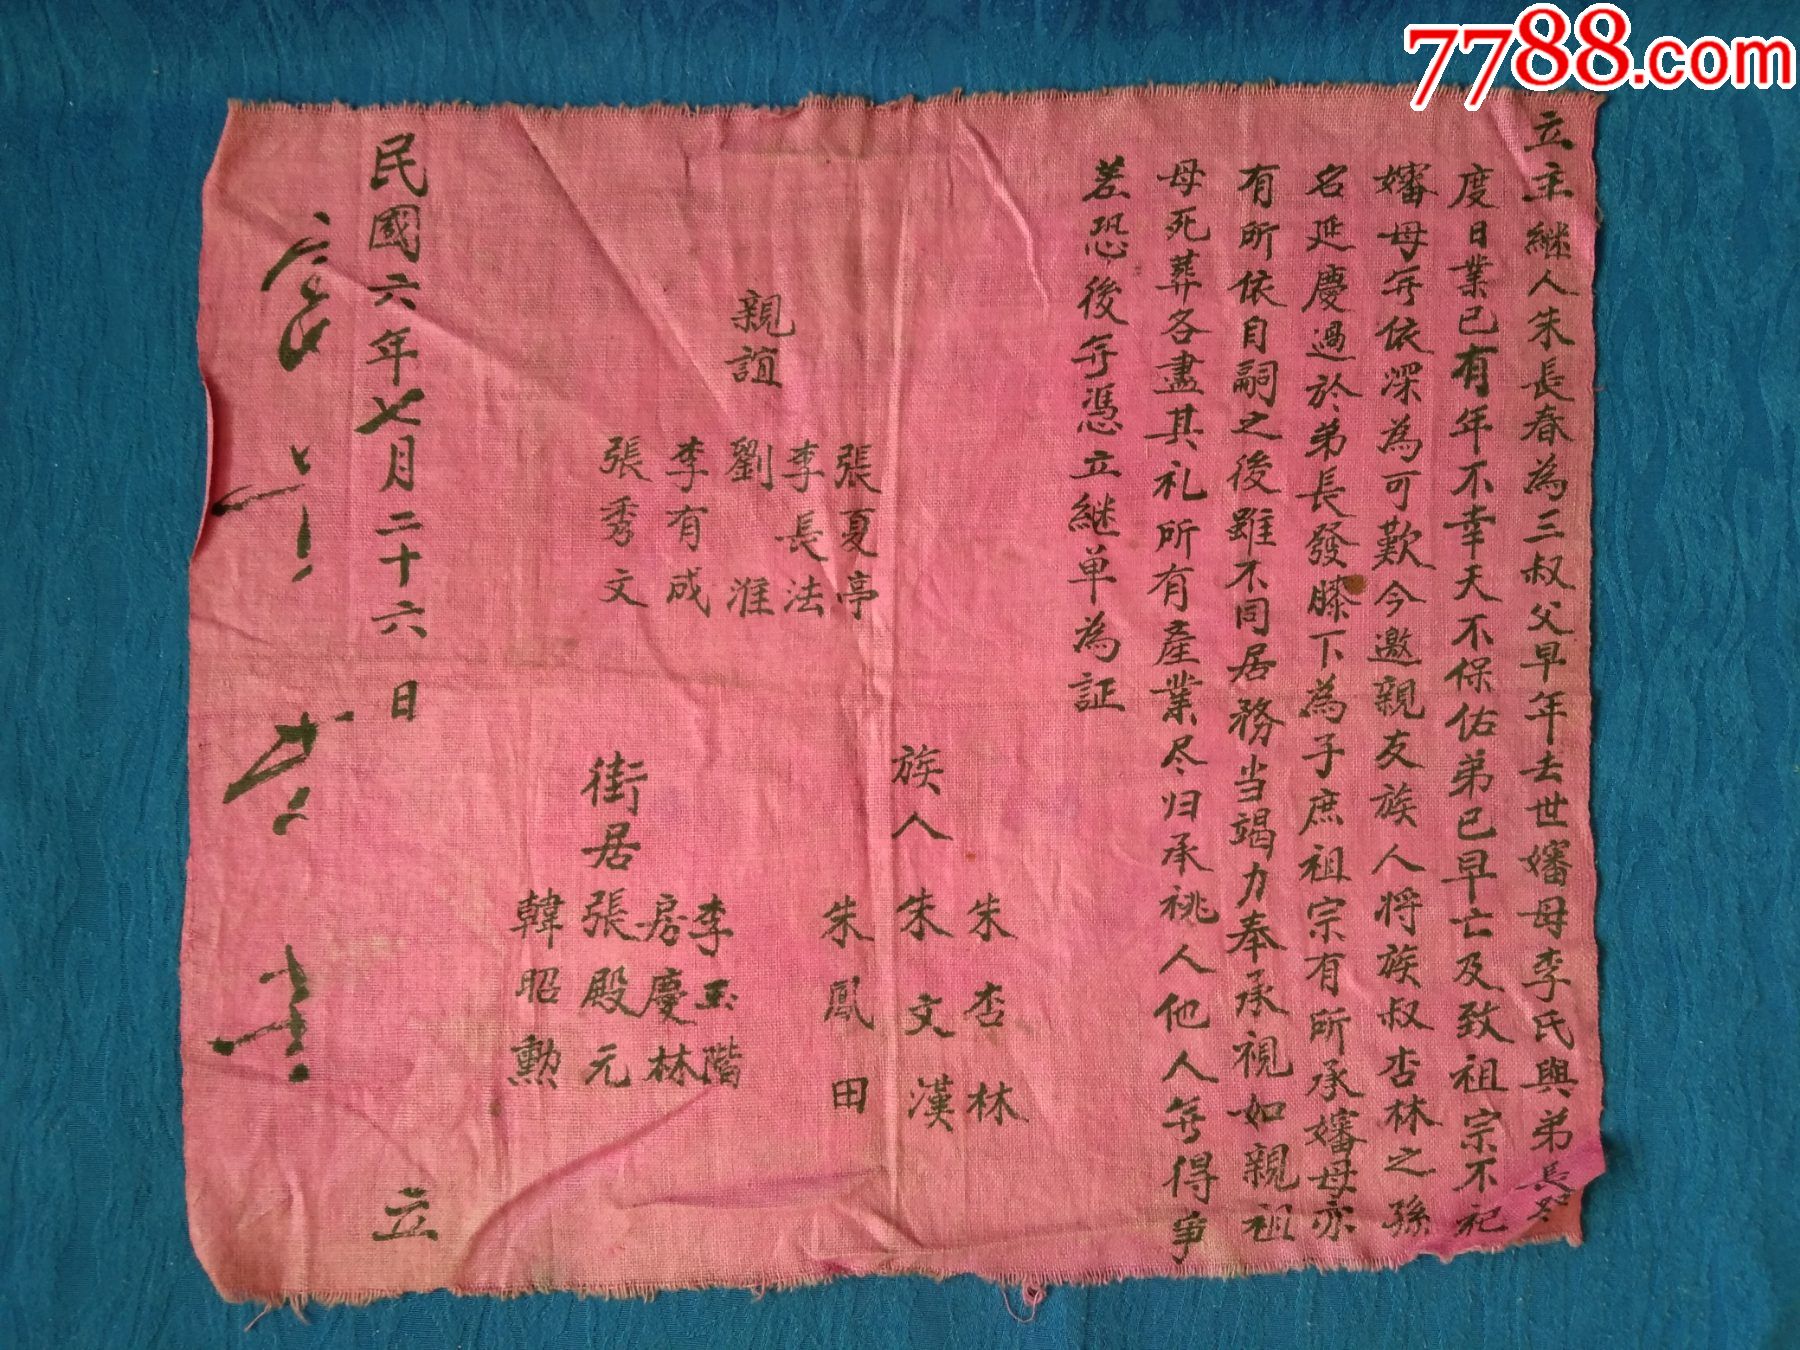 7788.com
立主継人朱長春為三叔父早年去世嬸母李氏與弟長
度日業已有年不幸天不保佑弟已早亡及致祖宗不祀
嬸母無依深為可歎今邀親友族人将族叔杏林之孫
名延慶過於弟長發膝下為子庶祖宗有所承嬸母亦
有所依自嗣之後雖不同居務当竭力奉承視如親祖
母死葬各盡其礼所有產業尽归承祧人他人無得爭
差恐後無憑立継单為証
親誼
張夏亭
李長法
劉淮
李有成
張秀文
族人
朱杏林
朱文漢
朱鳳田
街居
李玉階
房慶林
張殿元
韓昭勲
民國六年七月二十六日 立